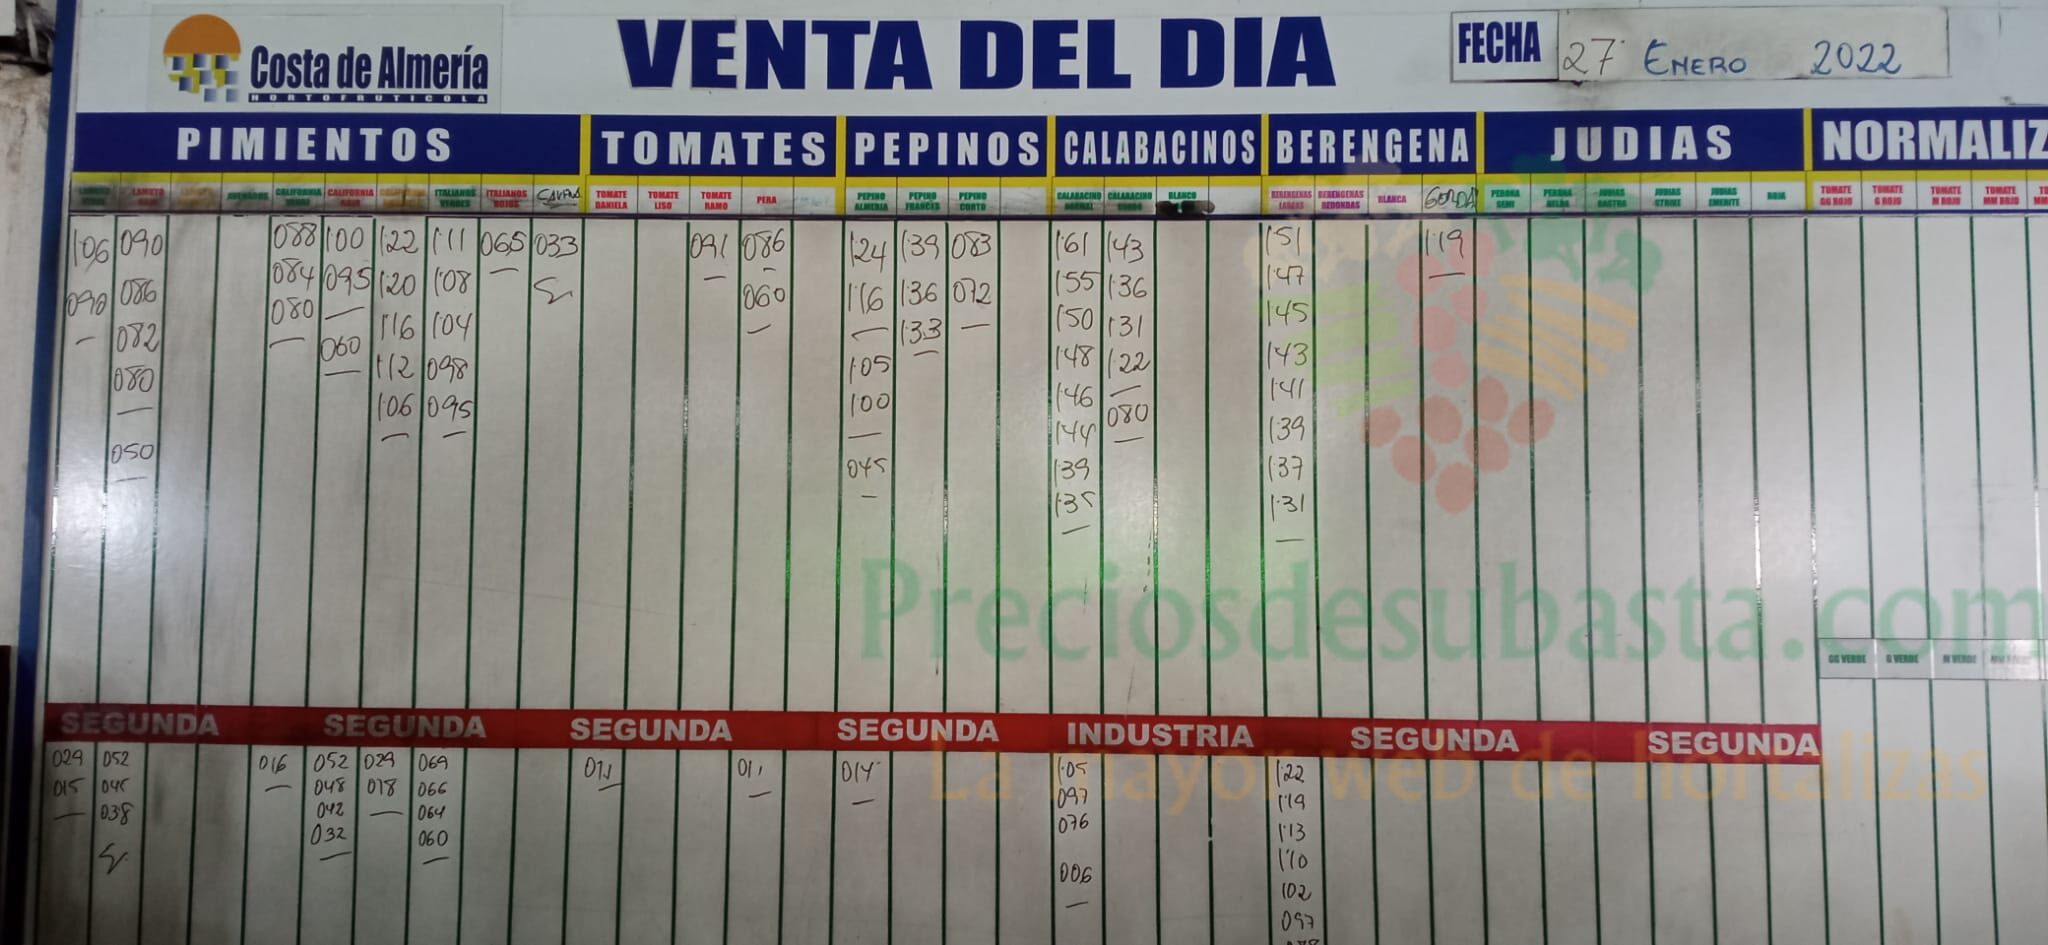 Costa de Almería
HORTOFRUTICOLA
VENTA DEL DIA
FECHA 27 ENERO 2022
PIMIENTOS TOMATES PEPINOS CALABACINOS BERENGENA JUDIAS NORMALIZ
LAMUYO CALIFORNIA CALIFORNIA ITALIANOS VERDES ITALIANOS ROJOS TOMATE DANIELA TOMATE LISO TOMATE RAMO PERA PEPINO ALMERIA PEPINO FRANCES PEPINO CORTO CALABACINO CALABACINO GORDO BLANCO BERENGENAS LARGAS BERENGENAS REDONDAS BLANCA GORDA PERONA SEMI PERONA JUDIAS RASTRA JUDIAS STRIKE JUDIAS EMERITE ROJA TOMATE GG ROJO TOMATE G ROJO TOMATE M ROJO TOMATE MM ROJO
106 090 088 100 1'22 1'11 065 033 091 086 1'24 1'39 083 1'61 1'43 1'51 1'19
090 086 084 095 1'20 1'08 060 1'16 1'36 072 1'55 1'36 1'47
082 080 060 1'16 1'04 1'33 1'50 1'31 1'45
080 1'12 098 1'05 1'48 1'22 1'43
1'06 095 1'00 1'46 080 1'41
050 045 1'44 1'39
1'39 1'37
1'35 1'31
Preciosdesubasta.com
GG VERDE G VERDE M VERDE
SEGUNDA SEGUNDA SEGUNDA SEGUNDA INDUSTRIA SEGUNDA SEGUNDA
La mayor web de hortalizas
029 052 016 052 029 069 014 1'05 1'22
015 045 048 018 066 097 1'19
038 042 064 076 1'13
032 060 1'10
006 102
097